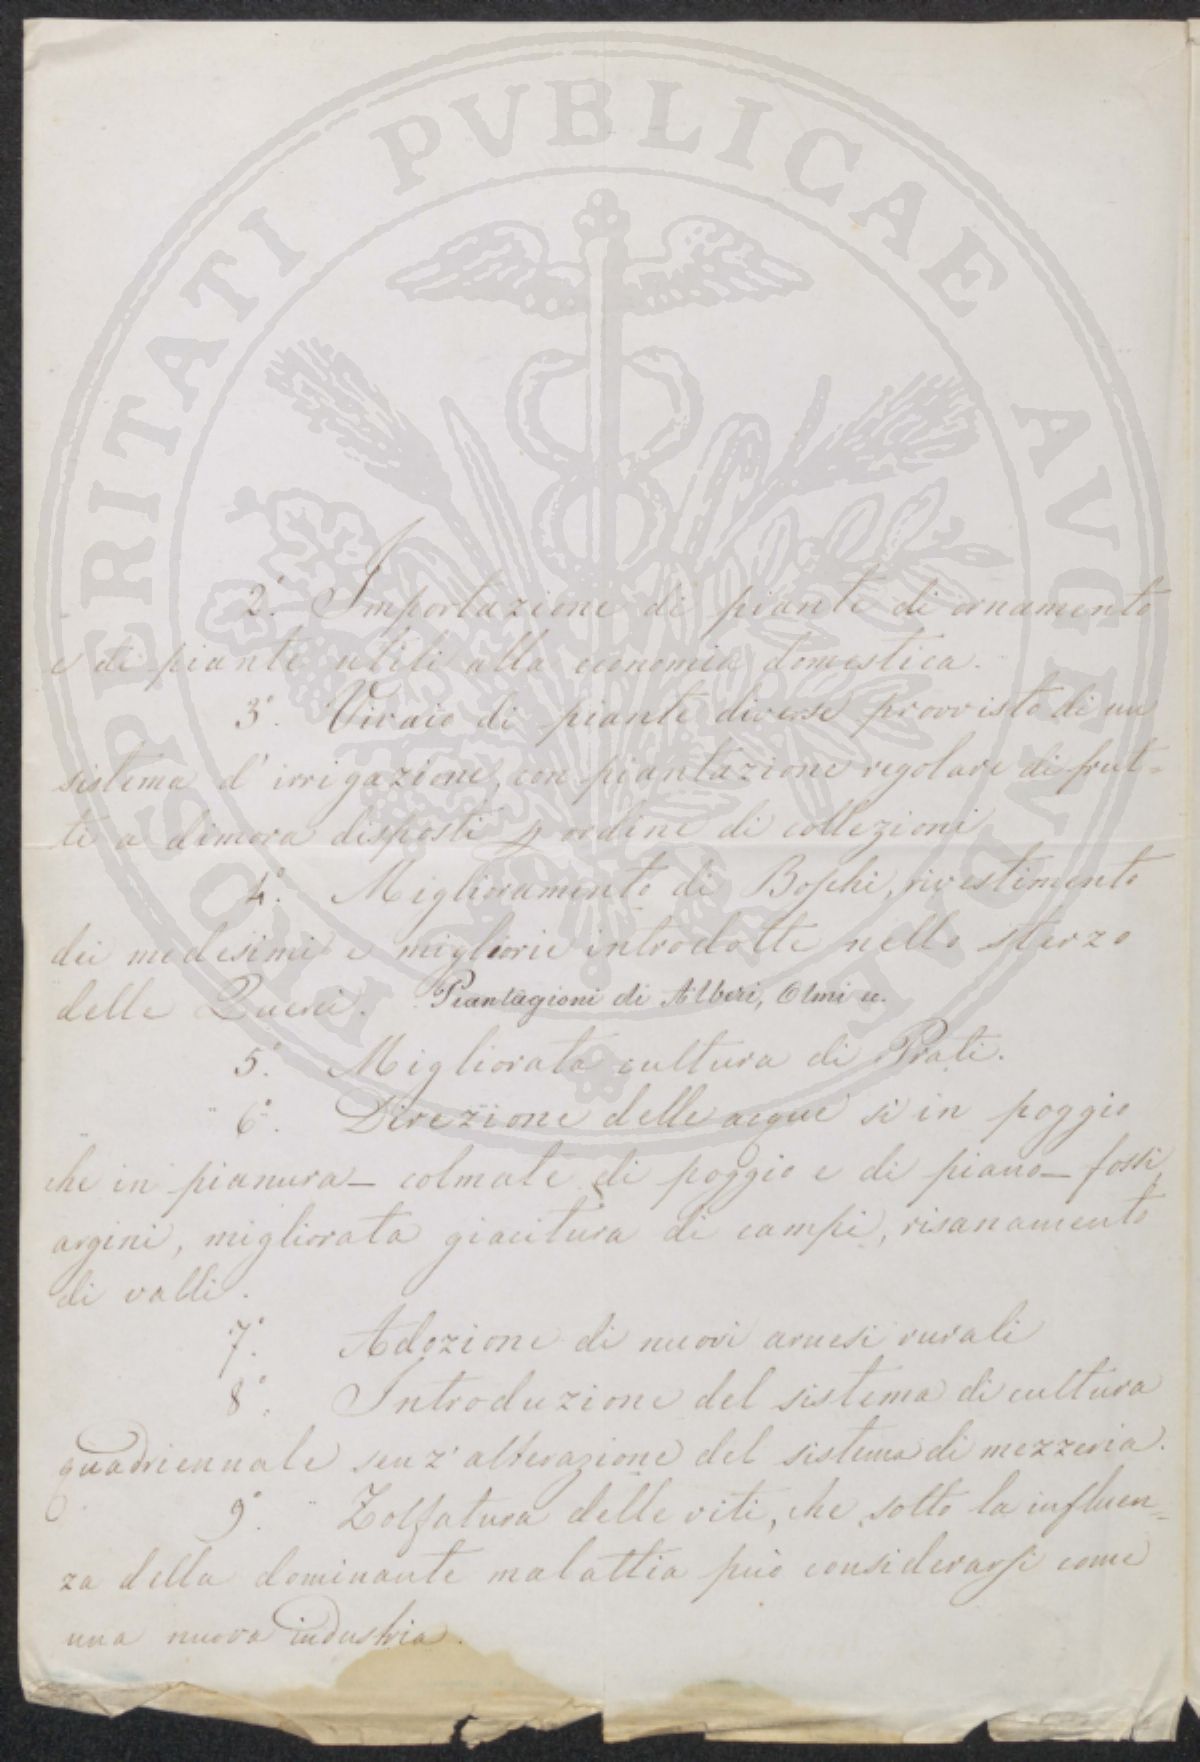 PROSPERITATI PVBLICAE AVGENDAE
2.° Importazione di piante di ornamento
e di piante utili alla economia domestica.
3.° Vivaio di piante diverse provvisto di un
sistema d' irrigazione, con piantazione regolare di frut=
ti a dimora disposti ꝑ ordine di collezioni
4.° Miglioramento di Boschi, rivestimento
dei medesimi e migliorie introdotte nello sterzo
delle Querci. Piantagioni di Alberi, Olmi ec.
5.° Migliorata cultura di Prati.
6.° Direzione delle acque sì in poggio
che in pianura — colmate di poggio e di piano — fossi,
argini, migliorata giacitura di campi, risanamento
di valli.
7.° Adozione di nuovi arnesi rurali
8.° Introduzione del sistema di cultura
quadriennale senz' alterazione del sistema di mezzeria.
9.° Zolfatura delle viti, che sotto la influen=
za della dominante malattia può considerarsi come
una nuova industria.